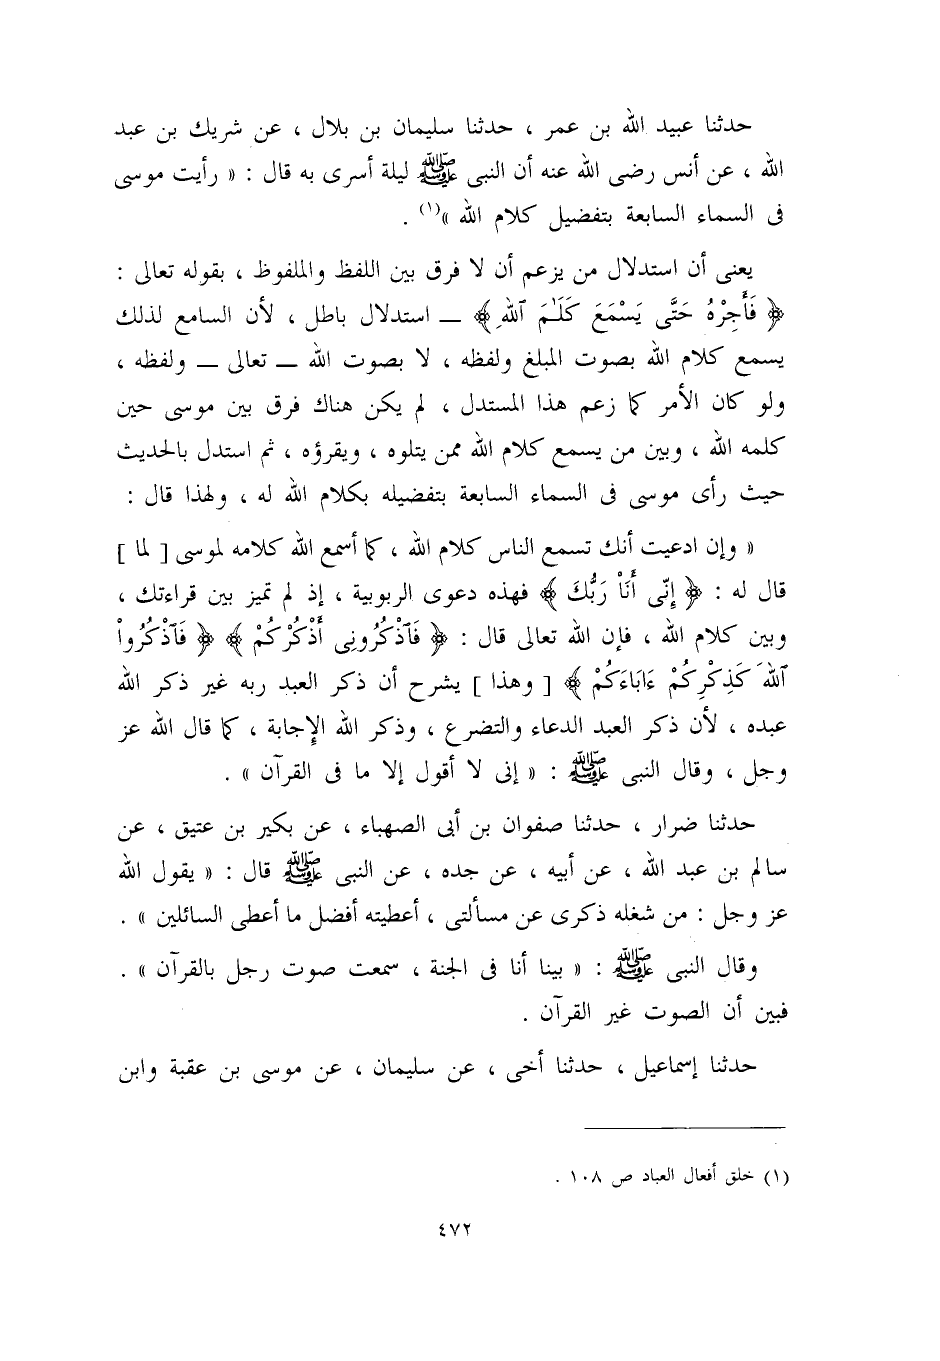 حدثنا عبيد الله بن عمر ، حدثنا سليمان بن بلال ، عن شريك بن عبد
الله ، عن أنس رضى الله عنه أن النبى ﷺ ليلة أسرى به قال : « رأيت موسى
فى السماء السابعة بتفضيل كلام الله »(١) .
يعنى أن استدلال من يزعم أن لا فرق بين اللفظ والملفوظ ، بقوله تعالى :
﴿ فَأَجِرْهُ حَتَّى يَسْمَعَ كَلَٰمَ ٱللَّهِ ﴾ ـــ استدلال باطل ، لأن السامع لذلك
يسمع كلام الله بصوت المبلغ ولفظه ، لا بصوت الله ـــ تعالى ـــ ولفظه ،
ولو كان الأمر كما زعم هذا المستدل ، لم يكن هناك فرق بين موسى حين
كلمه الله ، وبين من يسمع كلام الله ممن يتلوه ، ويقرؤه ، ثم استدل بالحديث
حيث رأى موسى فى السماء السابعة بتفضيله بكلام الله له ، ولهذا قال :
« وإن ادعيت أنك تسمع الناس كلام الله ، كما أسمع الله كلامه لموسى [ لما ]
قال له : ﴿ إِنِّى أَنَا۠ رَبُّكَ ﴾ فهذه دعوى الربوبية ، إذ لم تميز بين قراءتك ،
وبين كلام الله ، فإن الله تعالى قال : ﴿ فَٱذْكُرُونِى أَذْكُرْكُمْ ﴾ ﴿ فَٱذْكُرُوا۟
ٱللَّهَ كَذِكْرِكُمْ ءَابَاءَكُمْ ﴾ [ وهذا ] يشرح أن ذكر العبد ربه غير ذكر الله
عبده ، لأن ذكر العبد الدعاء والتضرع ، وذكر الله الإجابة ، كما قال الله عز
وجل ، وقال النبى ﷺ : « إنى لا أقول إلا ما فى القرآن » .
حدثنا ضرار ، حدثنا صفوان بن أبى الصهباء ، عن بكير بن عتيق ، عن
سالم بن عبد الله ، عن أبيه ، عن جده ، عن النبى ﷺ قال : « يقول الله
عز وجل : من شغله ذكرى عن مسألتى ، أعطيته أفضل ما أعطى السائلين » .
وقال النبى ﷺ : « بينا أنا فى الجنة ، سمعت صوت رجل بالقرآن » .
فبين أن الصوت غير القرآن .
حدثنا إسماعيل ، حدثنا أخى ، عن سليمان ، عن موسى بن عقبة وابن
(١) خلق أفعال العباد ص ١٠٨ .
٤٧٢